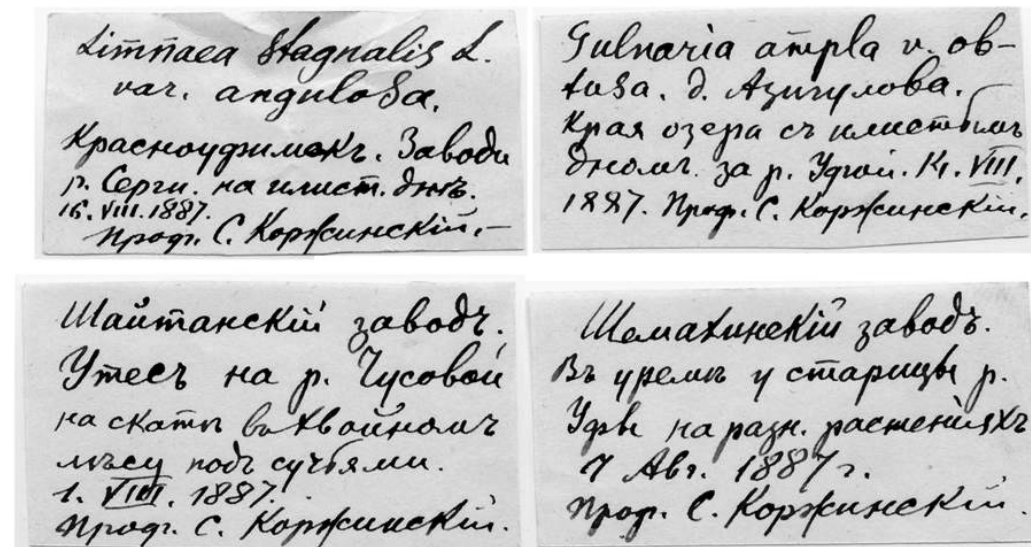 Limnaea Stagnalis L.
var. angulosa.
Красноуфимскъ. Заводи
р. Серги. на илист. днѣ.
16. VIII. 1887.
Проф. С. Коржинскій.—
Gulnaria ampla v. ob-
tusa. д. Азигулова.
Края озера съ илистымъ
дномъ. за р. Уфой. VIII.
1887. Проф. С. Коржинскій.
Шайтанскій заводъ.
Утесъ на р. Чусовой
на скатѣ въ хвойномъ
лѣсу подъ сучьями.
1. VIII. 1887.
Проф. С. Коржинскій.
Шемахинскій заводъ.
Въ уремѣ у старицы р.
Уфы на разн. растеніяхъ
7 Авг. 1887 г.
Проф. С. Коржинскій.